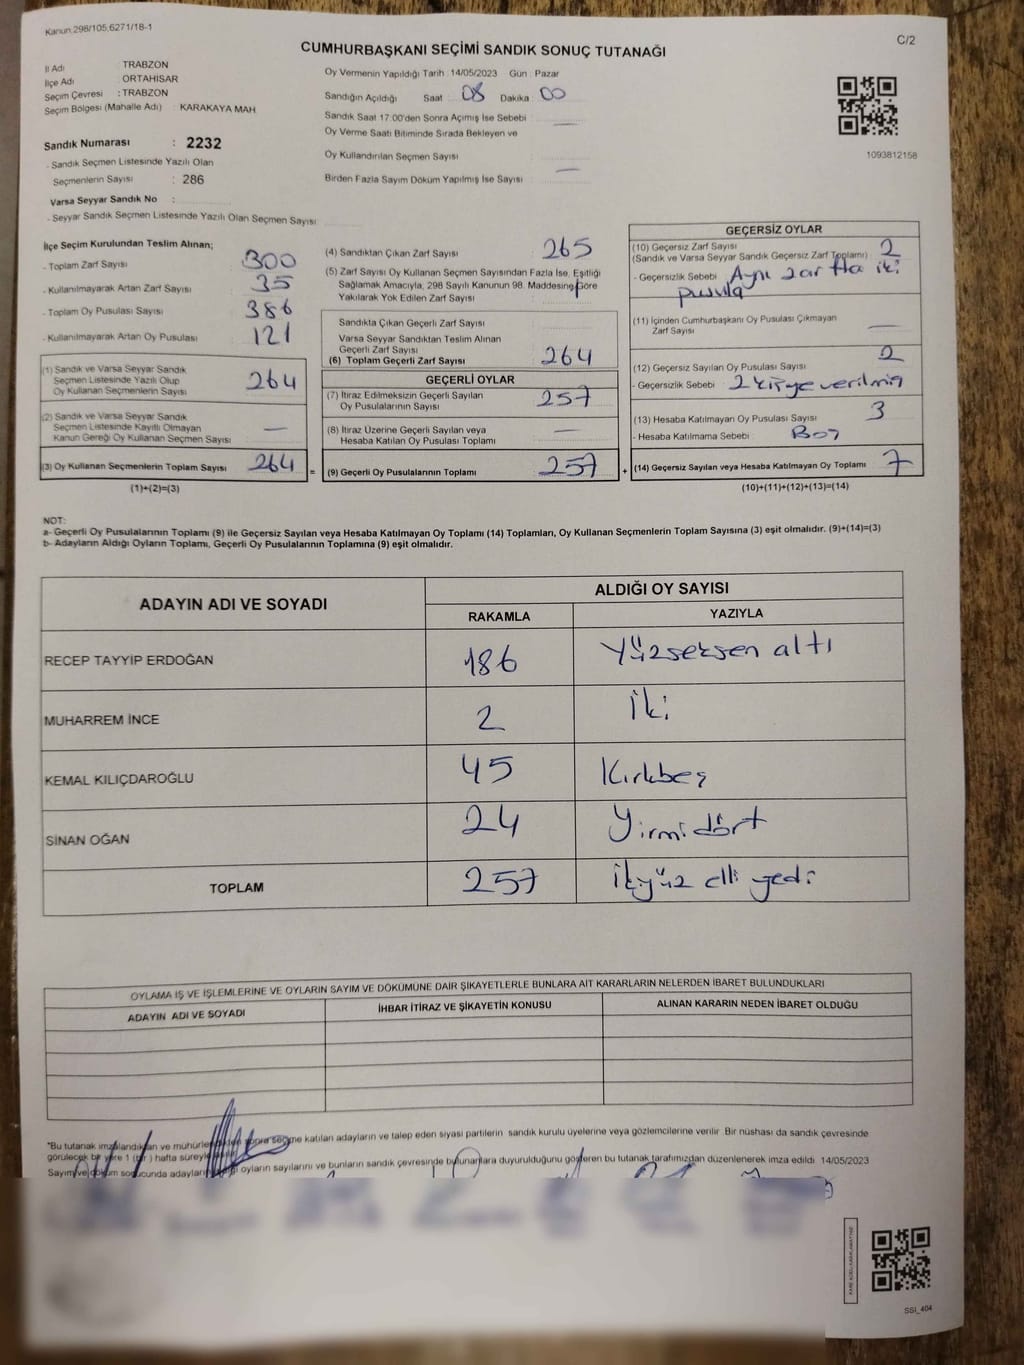 Kanun.298/105,6271/18-1
C/2
CUMHURBAŞKANI SEÇİMİ SANDIK SONUÇ TUTANAĞI
İl Adı TRABZON
İlçe Adı ORTAHİSAR
Seçim Çevresi : TRABZON
Seçim Bölgesi (Mahalle Adı) : KARAKAYA MAH
Sandık Numarası : 2232
- Sandık Seçmen Listesinde Yazılı Olan
Seçmenlerin Sayısı : 286
Varsa Seyyar Sandık No :
- Seyyar Sandık Seçmen Listesinde Yazılı Olan Seçmen Sayısı
Oy Vermenin Yapıldığı Tarih : 14/05/2023 Gün : Pazar
Sandığın Açıldığı Saat 08 Dakika 00
Sandık Saat 17:00'den Sonra Açımış İse Sebebi —
Oy Verme Saati Bitiminde Sırada Bekleyen ve
Oy Kullandırılan Seçmen Sayısı
Birden Fazla Sayım Döküm Yapılmış İse Sayısı —
1093812158
İlçe Seçim Kurulundan Teslim Alınan;
- Toplam Zarf Sayısı 300
- Kullanılmayarak Artan Zarf Sayısı 35
- Toplam Oy Pusulası Sayısı 386
- Kullanılmayarak Artan Oy Pusulası 121
(1) Sandık ve Varsa Seyyar Sandık
Seçmen Listesinde Yazılı Olup
Oy Kullanan Seçmenlerin Sayısı 264
(2) Sandık ve Varsa Seyyar Sandık
Seçmen Listesinde Kayıtlı Olmayan
Kanun Gereği Oy Kullanan Seçmen Sayısı —
(3) Oy Kullanan Seçmenlerin Toplam Sayısı 264 =
(1)+(2)=(3)
(4) Sandıktan Çıkan Zarf Sayısı 265
(5) Zarf Sayısı Oy Kullanan Seçmen Sayısından Fazla İse, Eşitliği
Sağlamak Amacıyla, 298 Sayılı Kanunun 98. Maddesine Göre
Yakılarak Yok Edilen Zarf Sayısı
Sandıkta Çıkan Geçerli Zarf Sayısı
Varsa Seyyar Sandıktan Teslim Alınan
Geçerli Zarf Sayısı
(6) Toplam Geçerli Zarf Sayısı 264
GEÇERLİ OYLAR
(7) İtiraz Edilmeksizin Geçerli Sayılan
Oy Pusulalarının Sayısı 257
(8) İtiraz Üzerine Geçerli Sayılan veya
Hesaba Katılan Oy Pusulası Toplamı —
(9) Geçerli Oy Pusulalarının Toplamı 257 +
GEÇERSİZ OYLAR
(10) Geçersiz Zarf Sayısı 2
(Sandık ve Varsa Seyyar Sandık Geçersiz Zarf Toplamı)
- Geçersizlik Sebebi Aynı zarfta iki
pusula
(11) İçinden Cumhurbaşkanı Oy Pusulası Çıkmayan
Zarf Sayısı —
(12) Geçersiz Sayılan Oy Pusulası Sayısı 2
- Geçersizlik Sebebi 2 kişiye verilmiş
(13) Hesaba Katılmayan Oy Pusulası Sayısı 3
- Hesaba Katılmama Sebebi Boş
(14) Geçersiz Sayılan veya Hesaba Katılmayan Oy Toplamı 7
(10)+(11)+(12)+(13)=(14)
NOT:
a- Geçerli Oy Pusulalarının Toplamı (9) ile Geçersiz Sayılan veya Hesaba Katılmayan Oy Toplamı (14) Toplamları, Oy Kullanan Seçmenlerin Toplam Sayısına (3) eşit olmalıdır. (9)+(14)=(3)
b- Adayların Aldığı Oyların Toplamı, Geçerli Oy Pusulalarının Toplamına (9) eşit olmalıdır.
ADAYIN ADI VE SOYADI ALDIĞI OY SAYISI
RAKAMLA YAZIYLA
RECEP TAYYİP ERDOĞAN 186 Yüzseksen altı
MUHARREM İNCE 2 İki
KEMAL KILIÇDAROĞLU 45 Kırkbeş
SİNAN OĞAN 24 Yirmi dört
TOPLAM 257 İkiyüz elli yedi
OYLAMA İŞ VE İŞLEMLERİNE VE OYLARIN SAYIM VE DÖKÜMÜNE DAİR ŞİKAYETLERLE BUNLARA AİT KARARLARIN NELERDEN İBARET BULUNDUKLARI
ADAYIN ADI VE SOYADI İHBAR İTİRAZ VE ŞİKAYETİN KONUSU ALINAN KARARIN NEDEN İBARET OLDUĞU
*Bu tutanak imzalandıktan ve mühürlendikten sonra seçme katılan adayların ve talep eden siyasi partilerin sandık kurulu üyelerine veya gözlemcilerine verilir. Bir nüshası da sandık çevresinde
görülecek bir yere 1 (bir) hafta süreyle
Sayım ve döküm sonucunda adayların oyların sayılarını ve bunların sandık çevresinde bulunanlara duyurulduğunu gösteren bu tutanak tarafımızdan düzenlenerek imza edildi. 14/05/2023
SSI_404